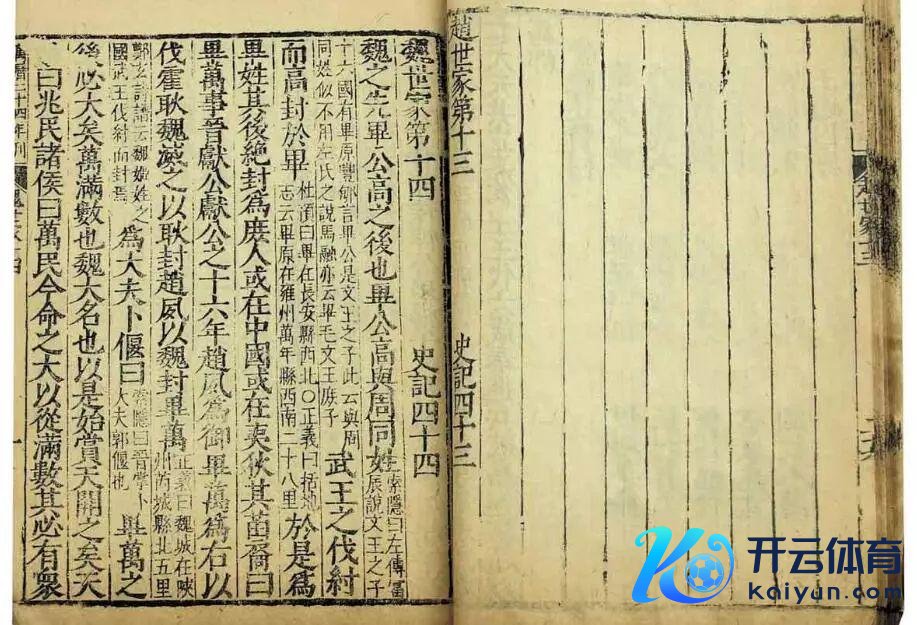 趙世家第十三 史記四十三
魏世家第十四 史記四十四
魏之先畢公高之後也畢公高與周同姓索隱曰左傳富辰說文王之子
十六國有畢原豐郇言畢公是文王之子此云與周同姓似不用左氏之說馬融亦云畢毛文王庶子武王之伐紂
而高封於畢杜預曰畢在長安縣西北○正義曰括地志云畢原在雍州萬年縣西南二十八里於是為
畢姓其後絕封為庶人或在中國或在夷狄其苗裔曰
畢萬事晉獻公獻公之十六年趙夙為御畢萬為右以
伐霍耿魏滅之以耿封趙夙以魏封畢萬正義曰魏城在陝州芮城縣北五里
鄭玄詩譜云魏姬姓之國武王伐紂而封焉為大夫卜偃曰索隱曰晉掌卜大夫郭偃也畢萬之
後必大矣萬滿數也魏大名也以是始賞天開之矣天
曰兆民諸侯曰萬民今命之大以從滿數其必有衆
二十四年刊 魏世家十四 一
开云体育
kaiyun.com